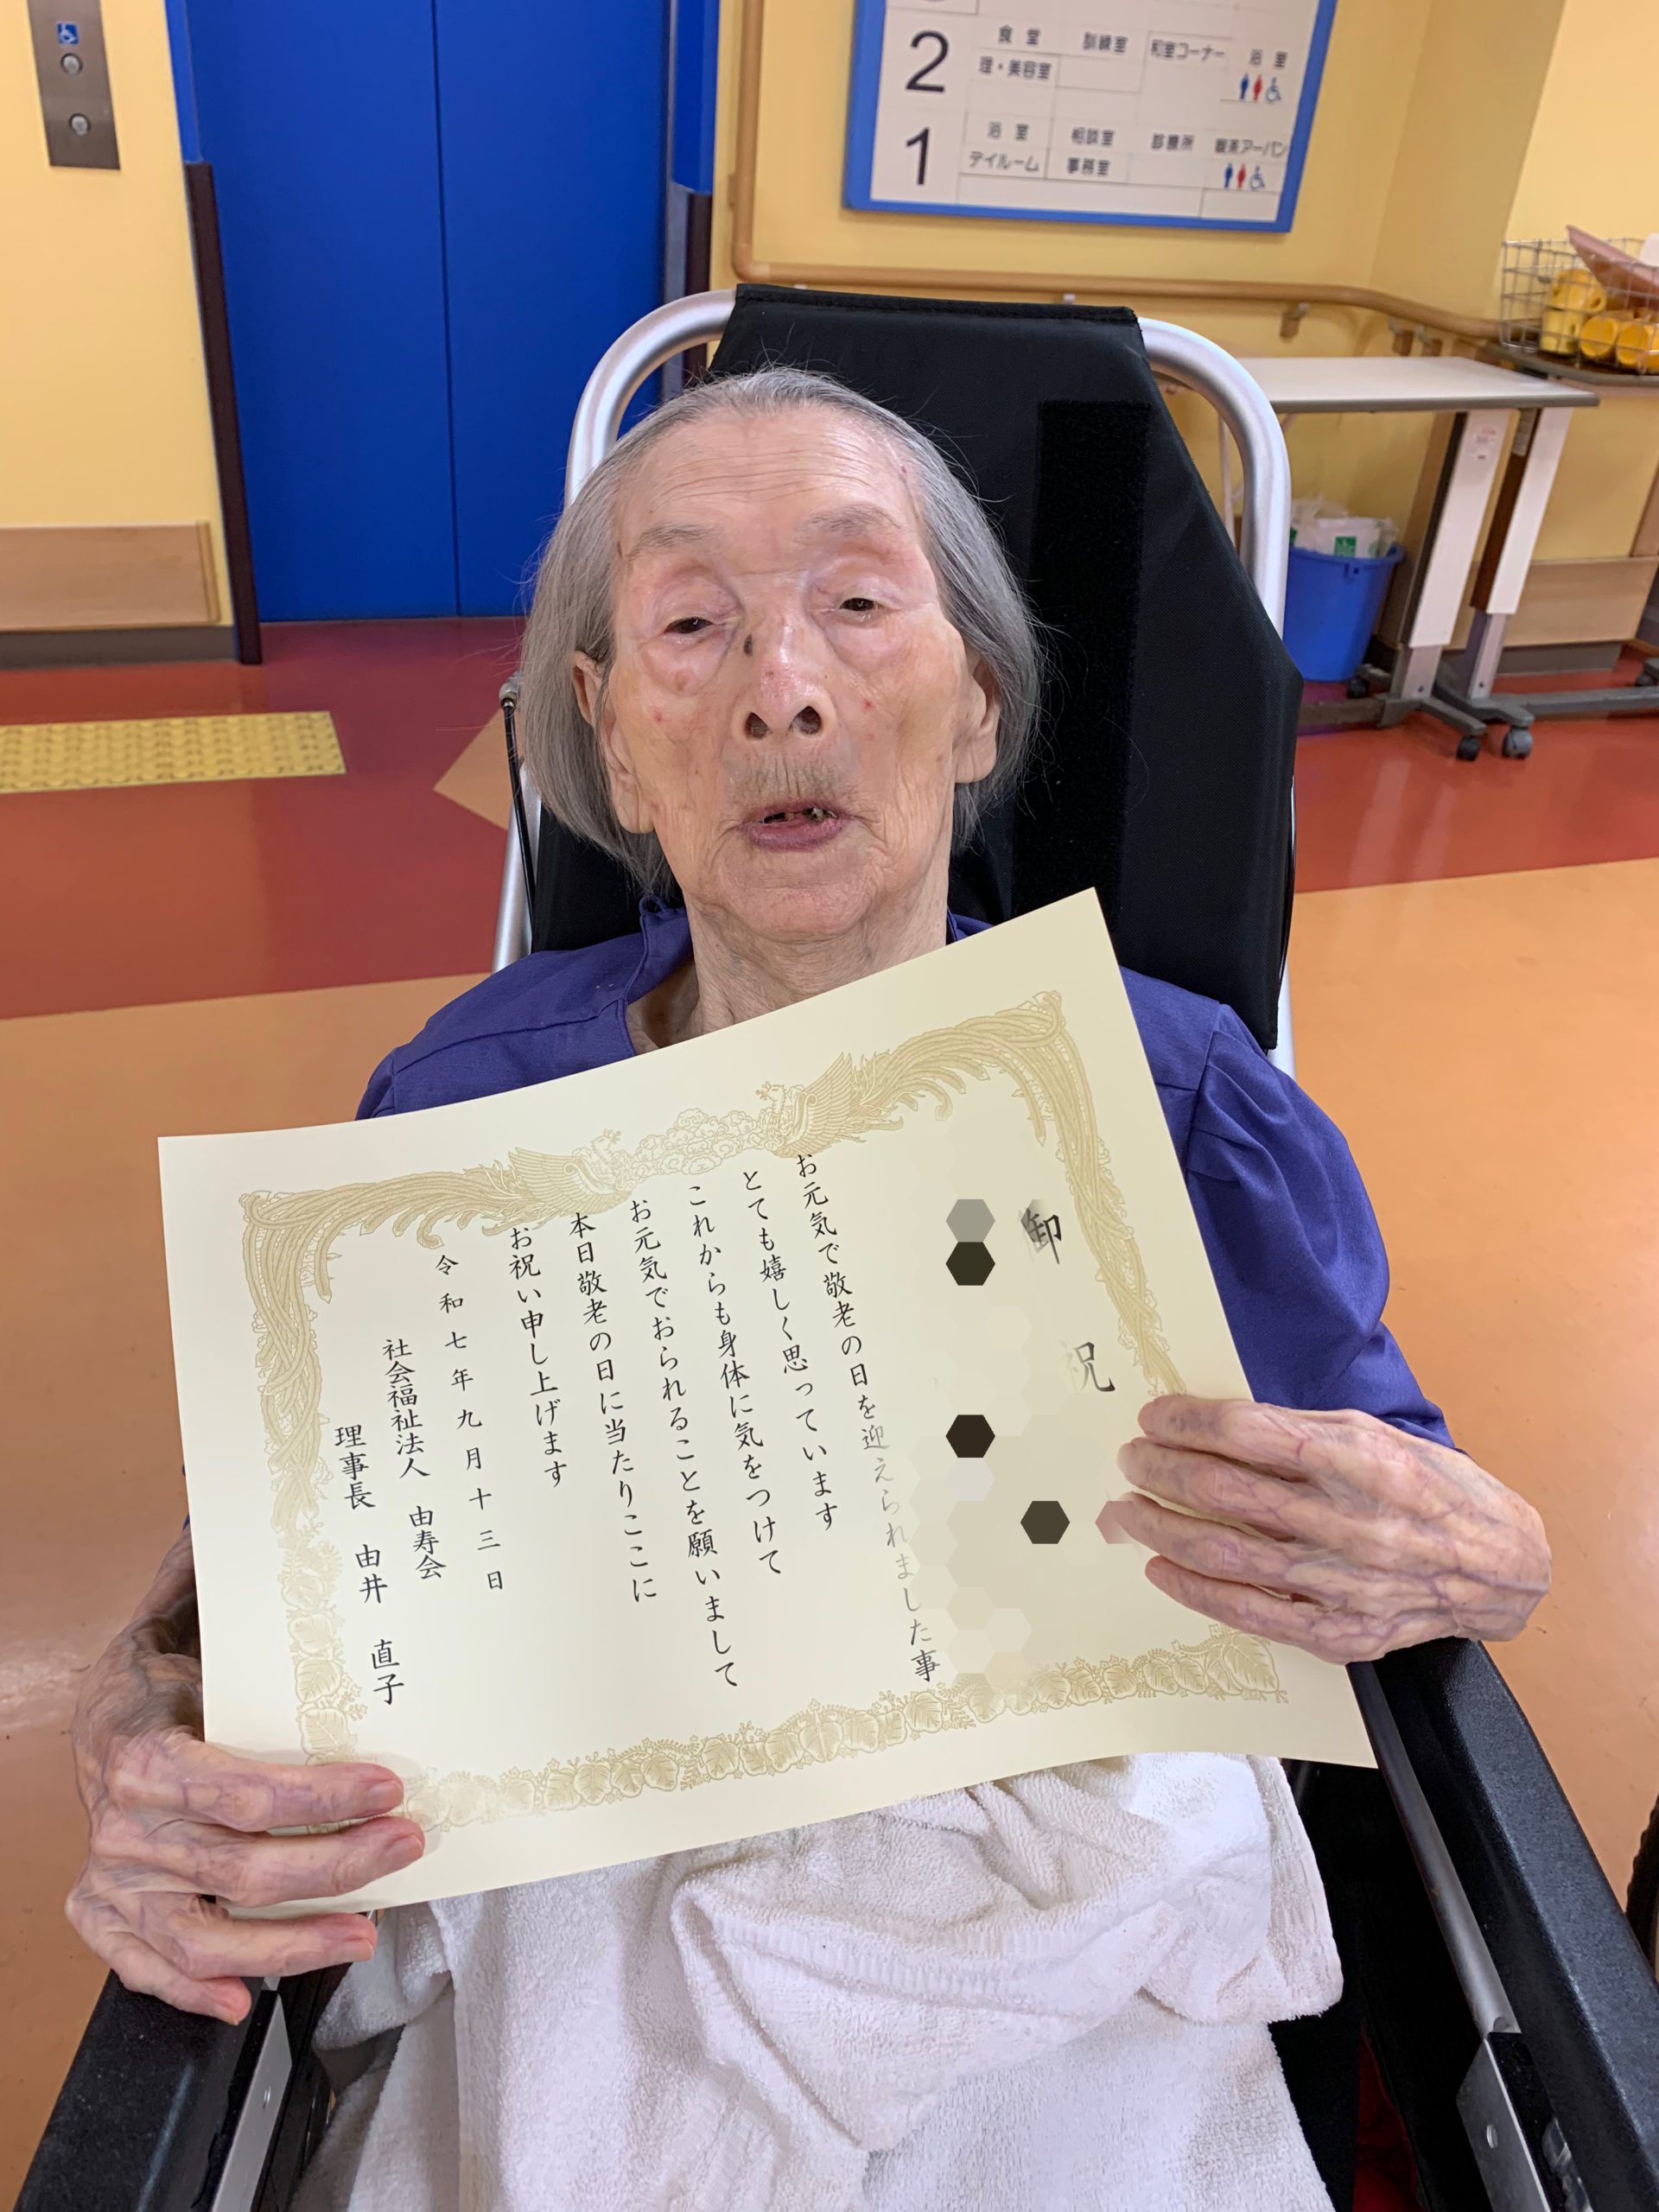 2
食堂
訓練室
和室コーナー
浴室
理・美容室
1
浴室
相談室
診療所
デイルーム
事務室
御祝
お元気で敬老の日を迎えられました事
とても嬉しく思っています
これからも身体に気をつけて
お元気でおられることを願いまして
本日敬老の日に当たりここに
お祝い申し上げます
令和七年九月十三日
社会福祉法人 由寿会
理事長 由井 直子